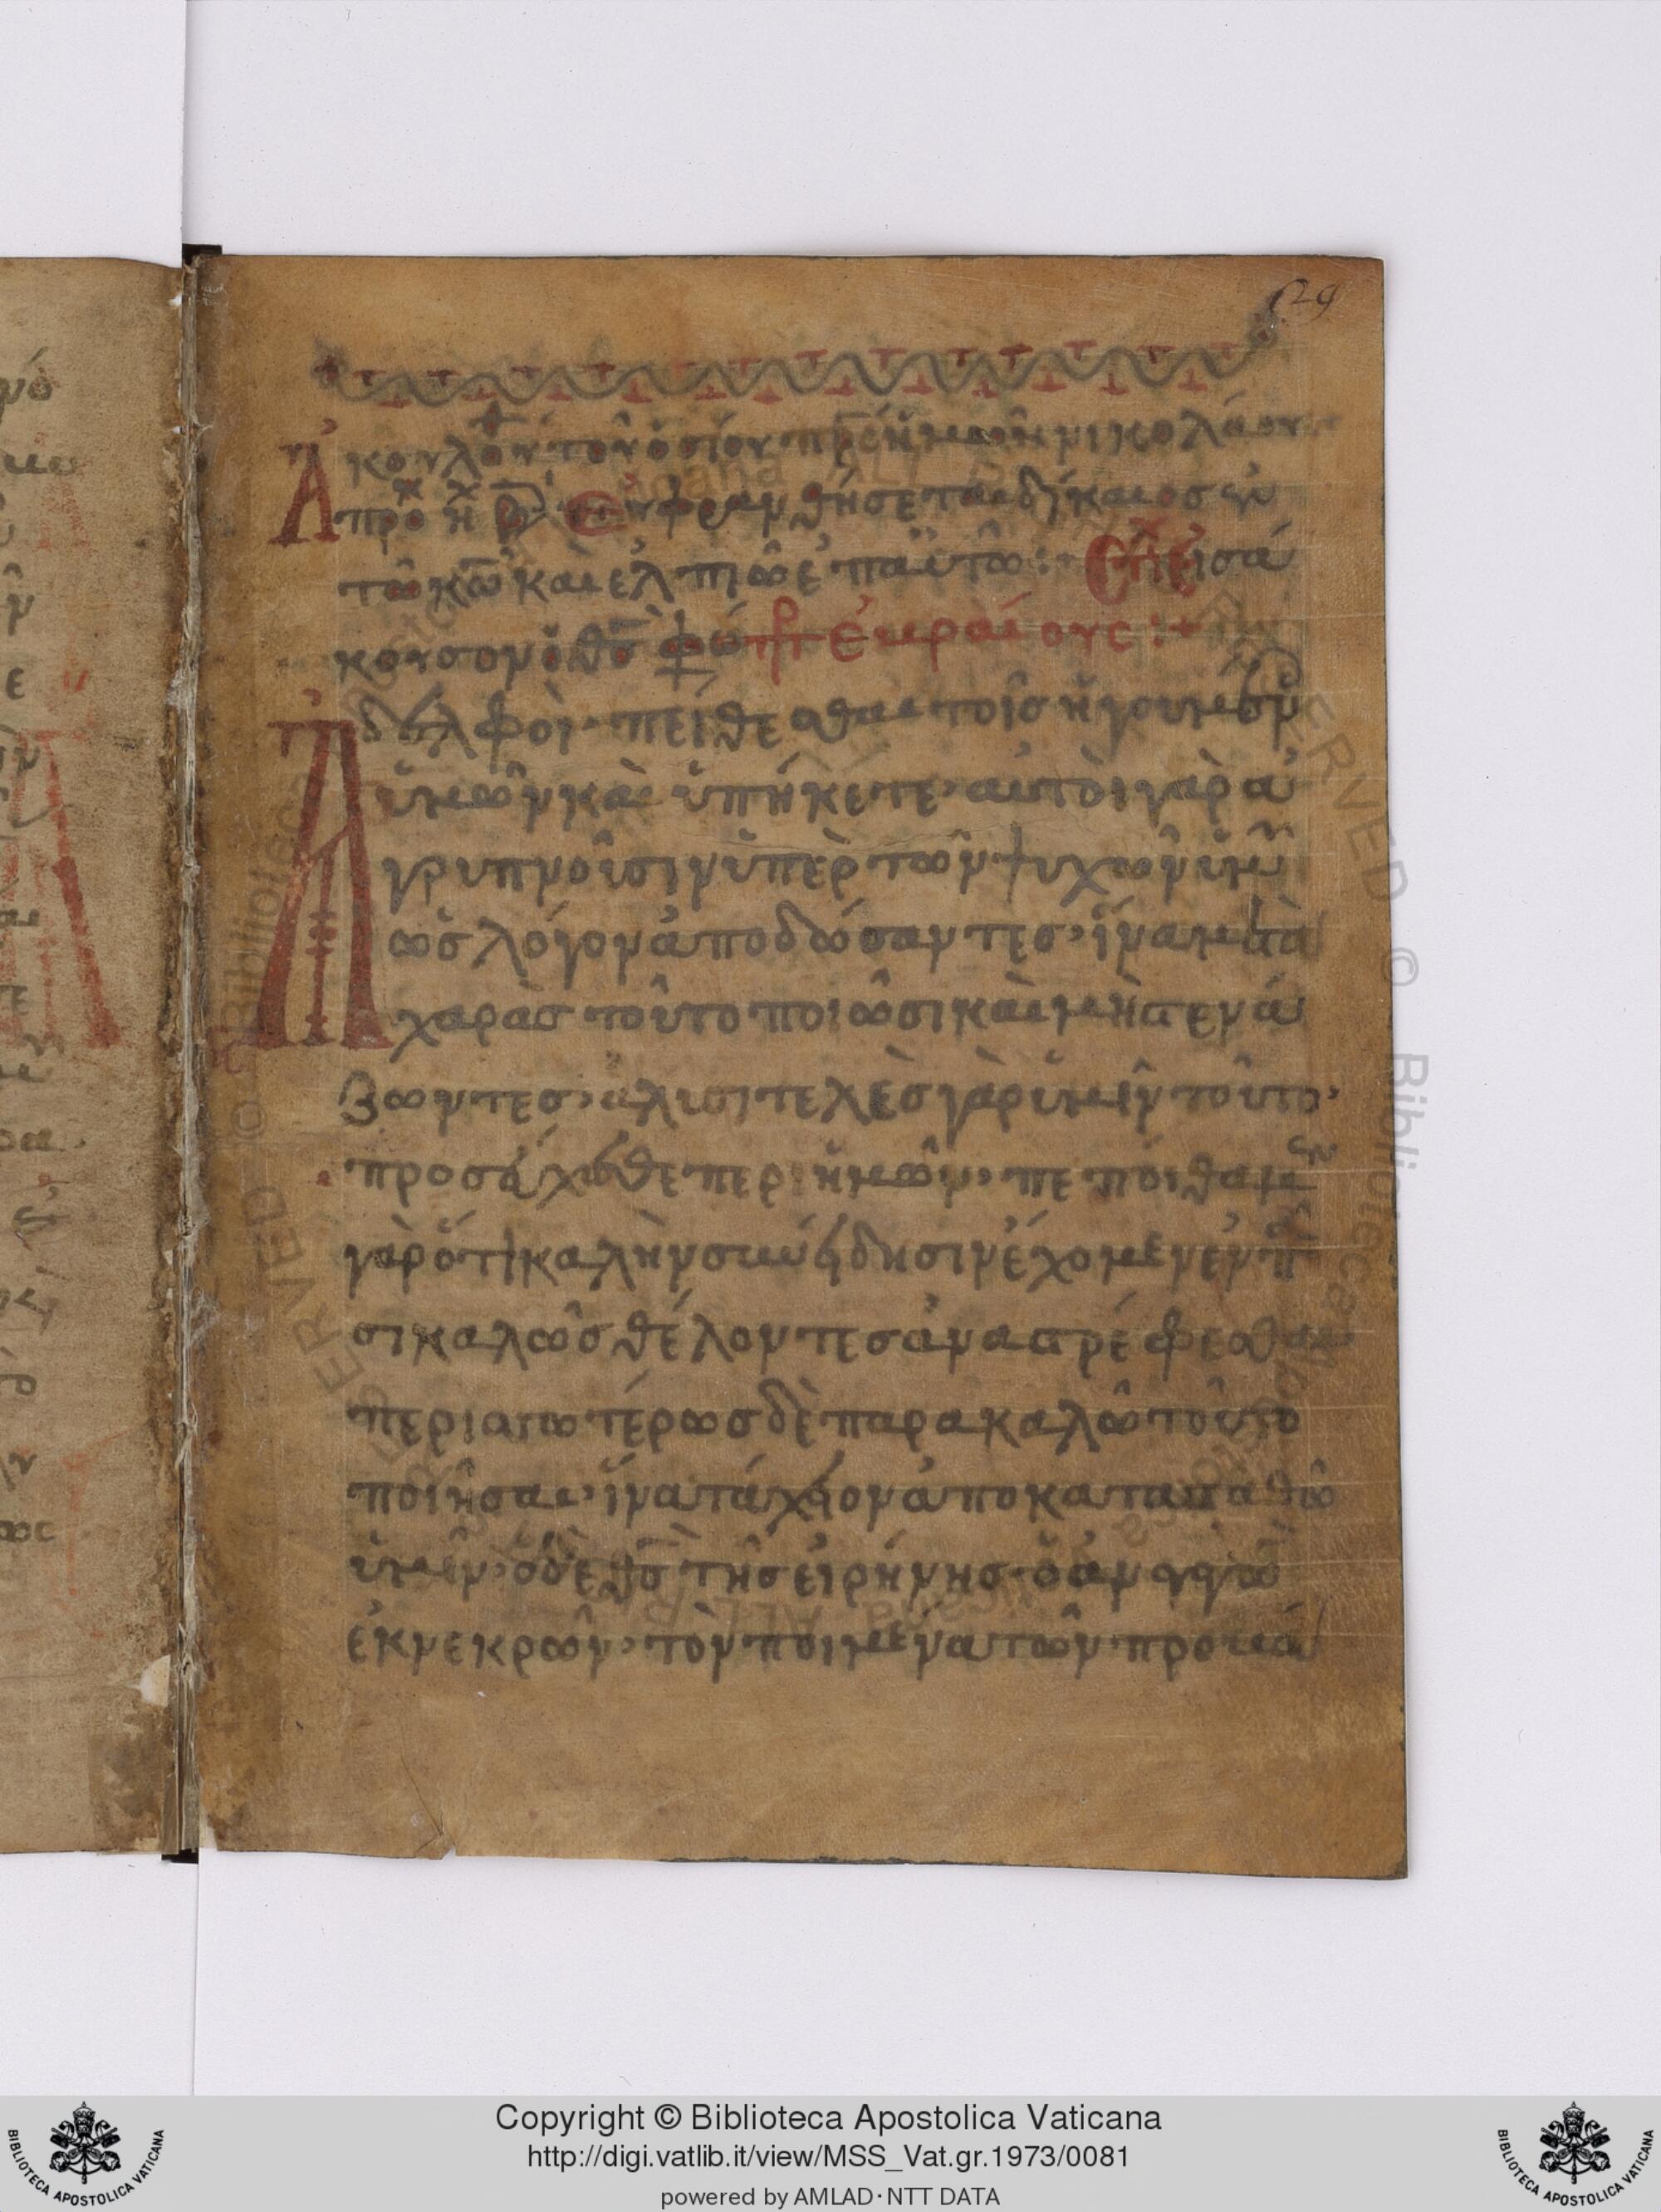 29
Ἀκουλου τοῦ ὁσίου πρς ἡμῶν νικολάου
προκ η β Εὐφρανθήσεται δίκαιος ἐν
τῶ κω καὶ ἐλπιεῖ ἐπαὐτῶ: Στιχ Εἰσά
κουσον ὁ θς φω πρ ἑβραίους :+
Ἀδελφοὶ· πείθεσθαι τοῖς ἡγουμέν
ὑμῶν καὶ ὑπήκετε· αὐτοὶ γὰρ ἀ
γρυπνοῦσιν ὑπὲρ τῶν ψυχῶν ὑμῶ
ὡς λόγον ἀποδώσαντες· ἵνα μετὰ
χαρὰς τοῦτο ποιῶσι καὶ μὴ στενά
ζωντες· ἀλυσιτελὲς γὰρ ὑμῖν τοῦτο·
προσεύχεσθε περι ἡμῶν· πεποίθαμεν
γὰρ ὅτι καλὴν συνείδησιν ἔχομεν ἐν πᾶ
σι καλῶς θέλοντες ἀναστρέφεσθαι
περισσωτέρως δὲ παρακαλῶ τοῦτο
ποιῆσαι· ἵνα τάχειον ἀποκατασταθῶ
ὑμῖν· ὁ δὲ θς τῆς εἰρήνης· ὁ ἀναγαγὼ
ἐκ νεκρῶν· τὸν ποιμένα τῶν προβά
Copyright © Biblioteca Apostolica Vaticana
http://digi.vatlib.it/view/MSS_Vat.gr.1973/0081
powered by AMLAD·NTT DATA
BIBLIOTECA APOSTOLICA VATICANA
BIBLIOTECA APOSTOLICA VATICANA